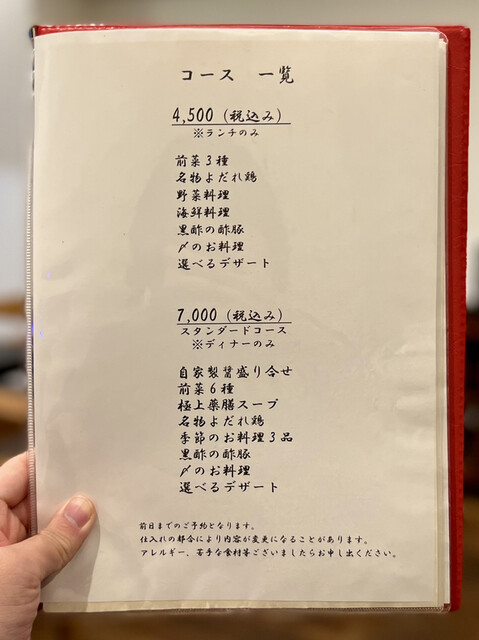 コース 一覧
4,500(税込み)
※ランチのみ
前菜3種
名物よだれ鶏
野菜料理
海鮮料理
黒酢の酢豚
〆のお料理
選べるデザート
7,000(税込み)
スタンダードコース
※ディナーのみ
自家製醤盛り合せ
前菜6種
極上薬膳スープ
名物よだれ鶏
季節のお料理3品
黒酢の酢豚
〆のお料理
選べるデザート
前日までのご予約となります。
仕入れの都合により内容が変更になることがあります。
アレルギー、苦手な食材等ございましたらお申し出ください。